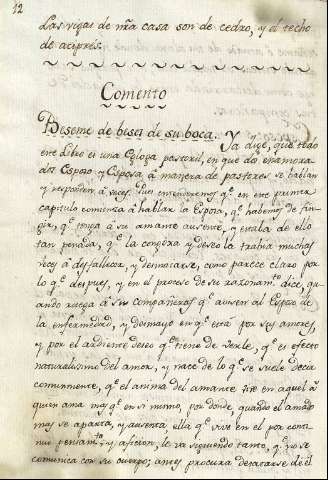 12
Las vigas de nr̃a casa son de cedro, y el techo
de acipres.
Comento
Beseme de besos de su boca. Ya dije, que todo
este Libro es una Egloga pastoril, en que dos enamora-
dos Esposo y Esposa, à manera de pastores se hablan
y responden à veces. Pues entenderemos q.e en este primer
capitulo comienza à hablar la Esposa, q.e habemos de fin-
gir, q.e tenga à su amante ausente, y estaba de ello
tan penada, q.e la congoxa y deseo la trahía muchas
veces à desfallecer, y desmayarse, como parece claro por
lo q.e despues, y en el proceso de su razonam.to dice, qu-
ando ruega à sus compañeras q.e avisen al Esposo de
la enfermedad, y desmayo en q.e está por sus amores,
y por el ardiente deseo q.e tiene de verle, q.e es efecto
naturalisimo del amor, y nace de lo q.e se suele decir
comunmente, q.e el anima del amante vive en aquel à
quien ama mas q.e en si mismo, por donde quando el amado
mas se aparta, y ausenta ella q.e vive en él por con-
tinuo pensam.to y aficion, le va siguiendo tanto, q.e no se
comunica con su cuerpo; antes procura desatarse de él